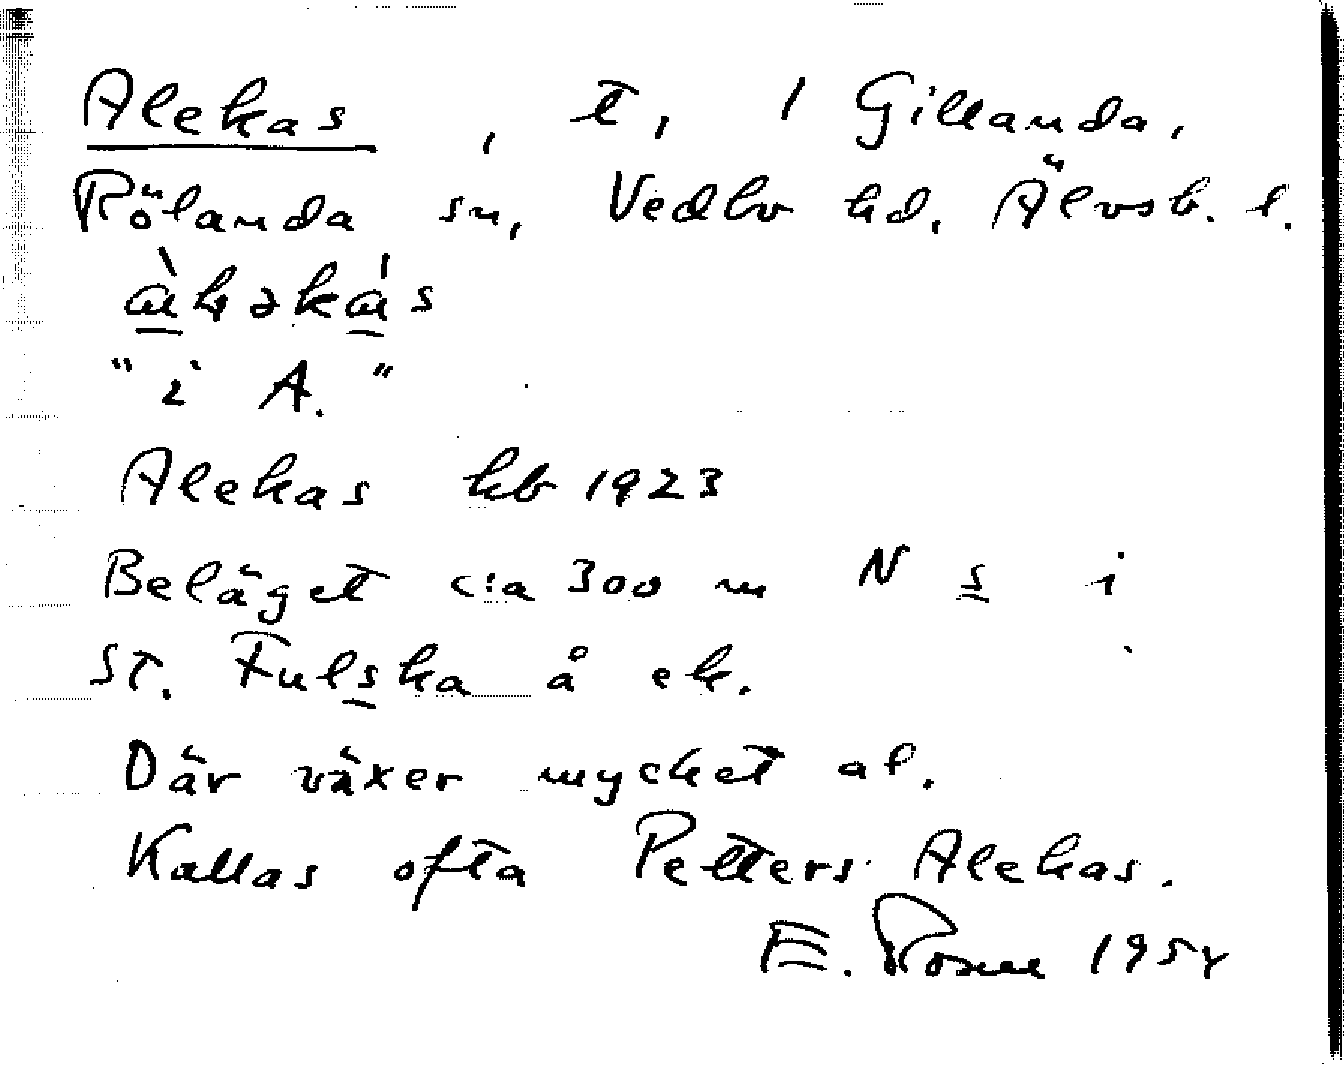 Alekas, t, / Gillanda,
Rölanda sn, Vedbo hd. Älvsb. l.
"i A."
Alekas kb 1923
Beläget c:a 300 m N s i
St. Fulska å ek.
Där växer mycket al.
Kallas ofta Petters Alekas.
E. 195